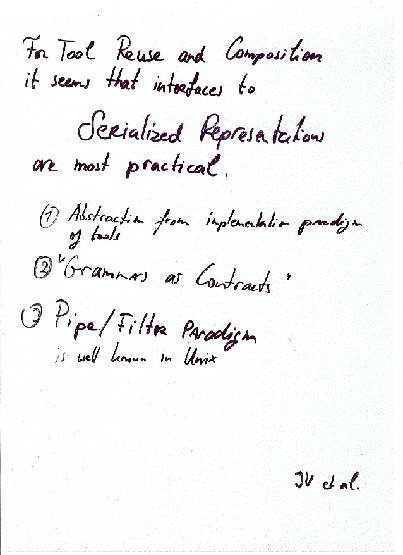 For Tool Reuse and Composition
it seems that interfaces to
Serialized Representations
are most practical.
① Abstraction from implementation paradigm
of tools
② "Grammars as Contracts"
③ Pipe/Filter Paradigm
is well known in Unix
JV et al.